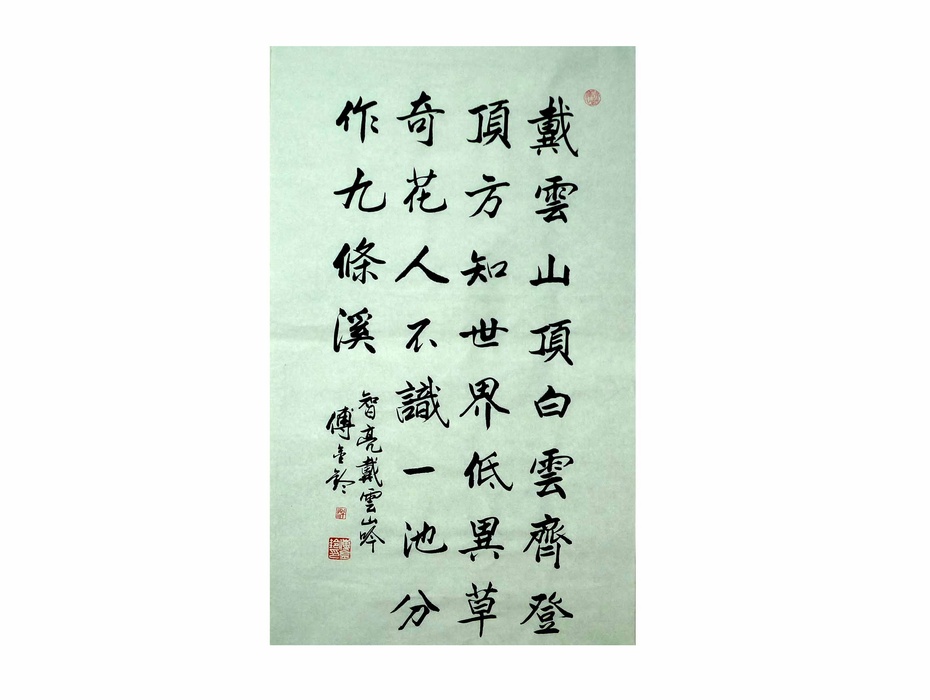 戴雲山頂白雲齊登
頂方知世界低異草
奇花人不識一池分
作九條溪
智亮戴雲山吟
傅金鈴